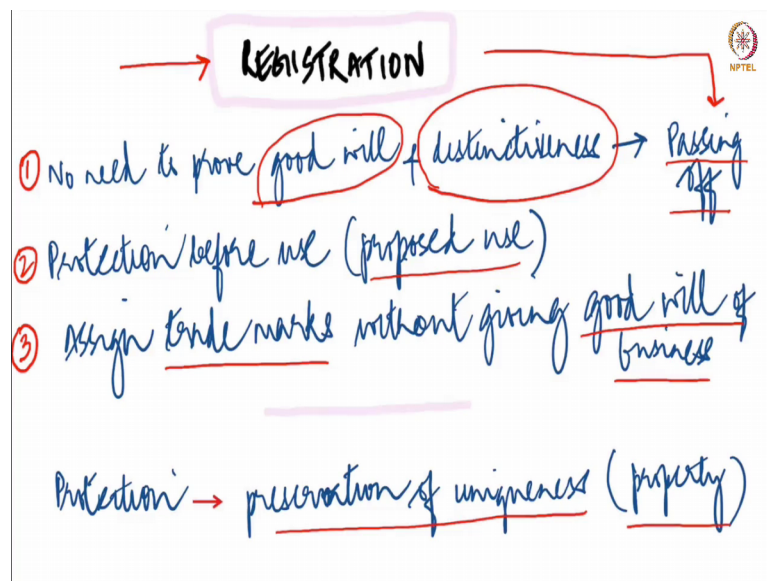 REGISTRATION
NPTEL
① No need to prove good will & distinctiveness → Passing off
② Protection before use (proposed use)
③ Assign trade marks without giving good will of business
Protection → preservation of uniqueness (property)